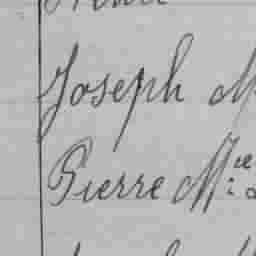 Joseph M
Pierre Mie